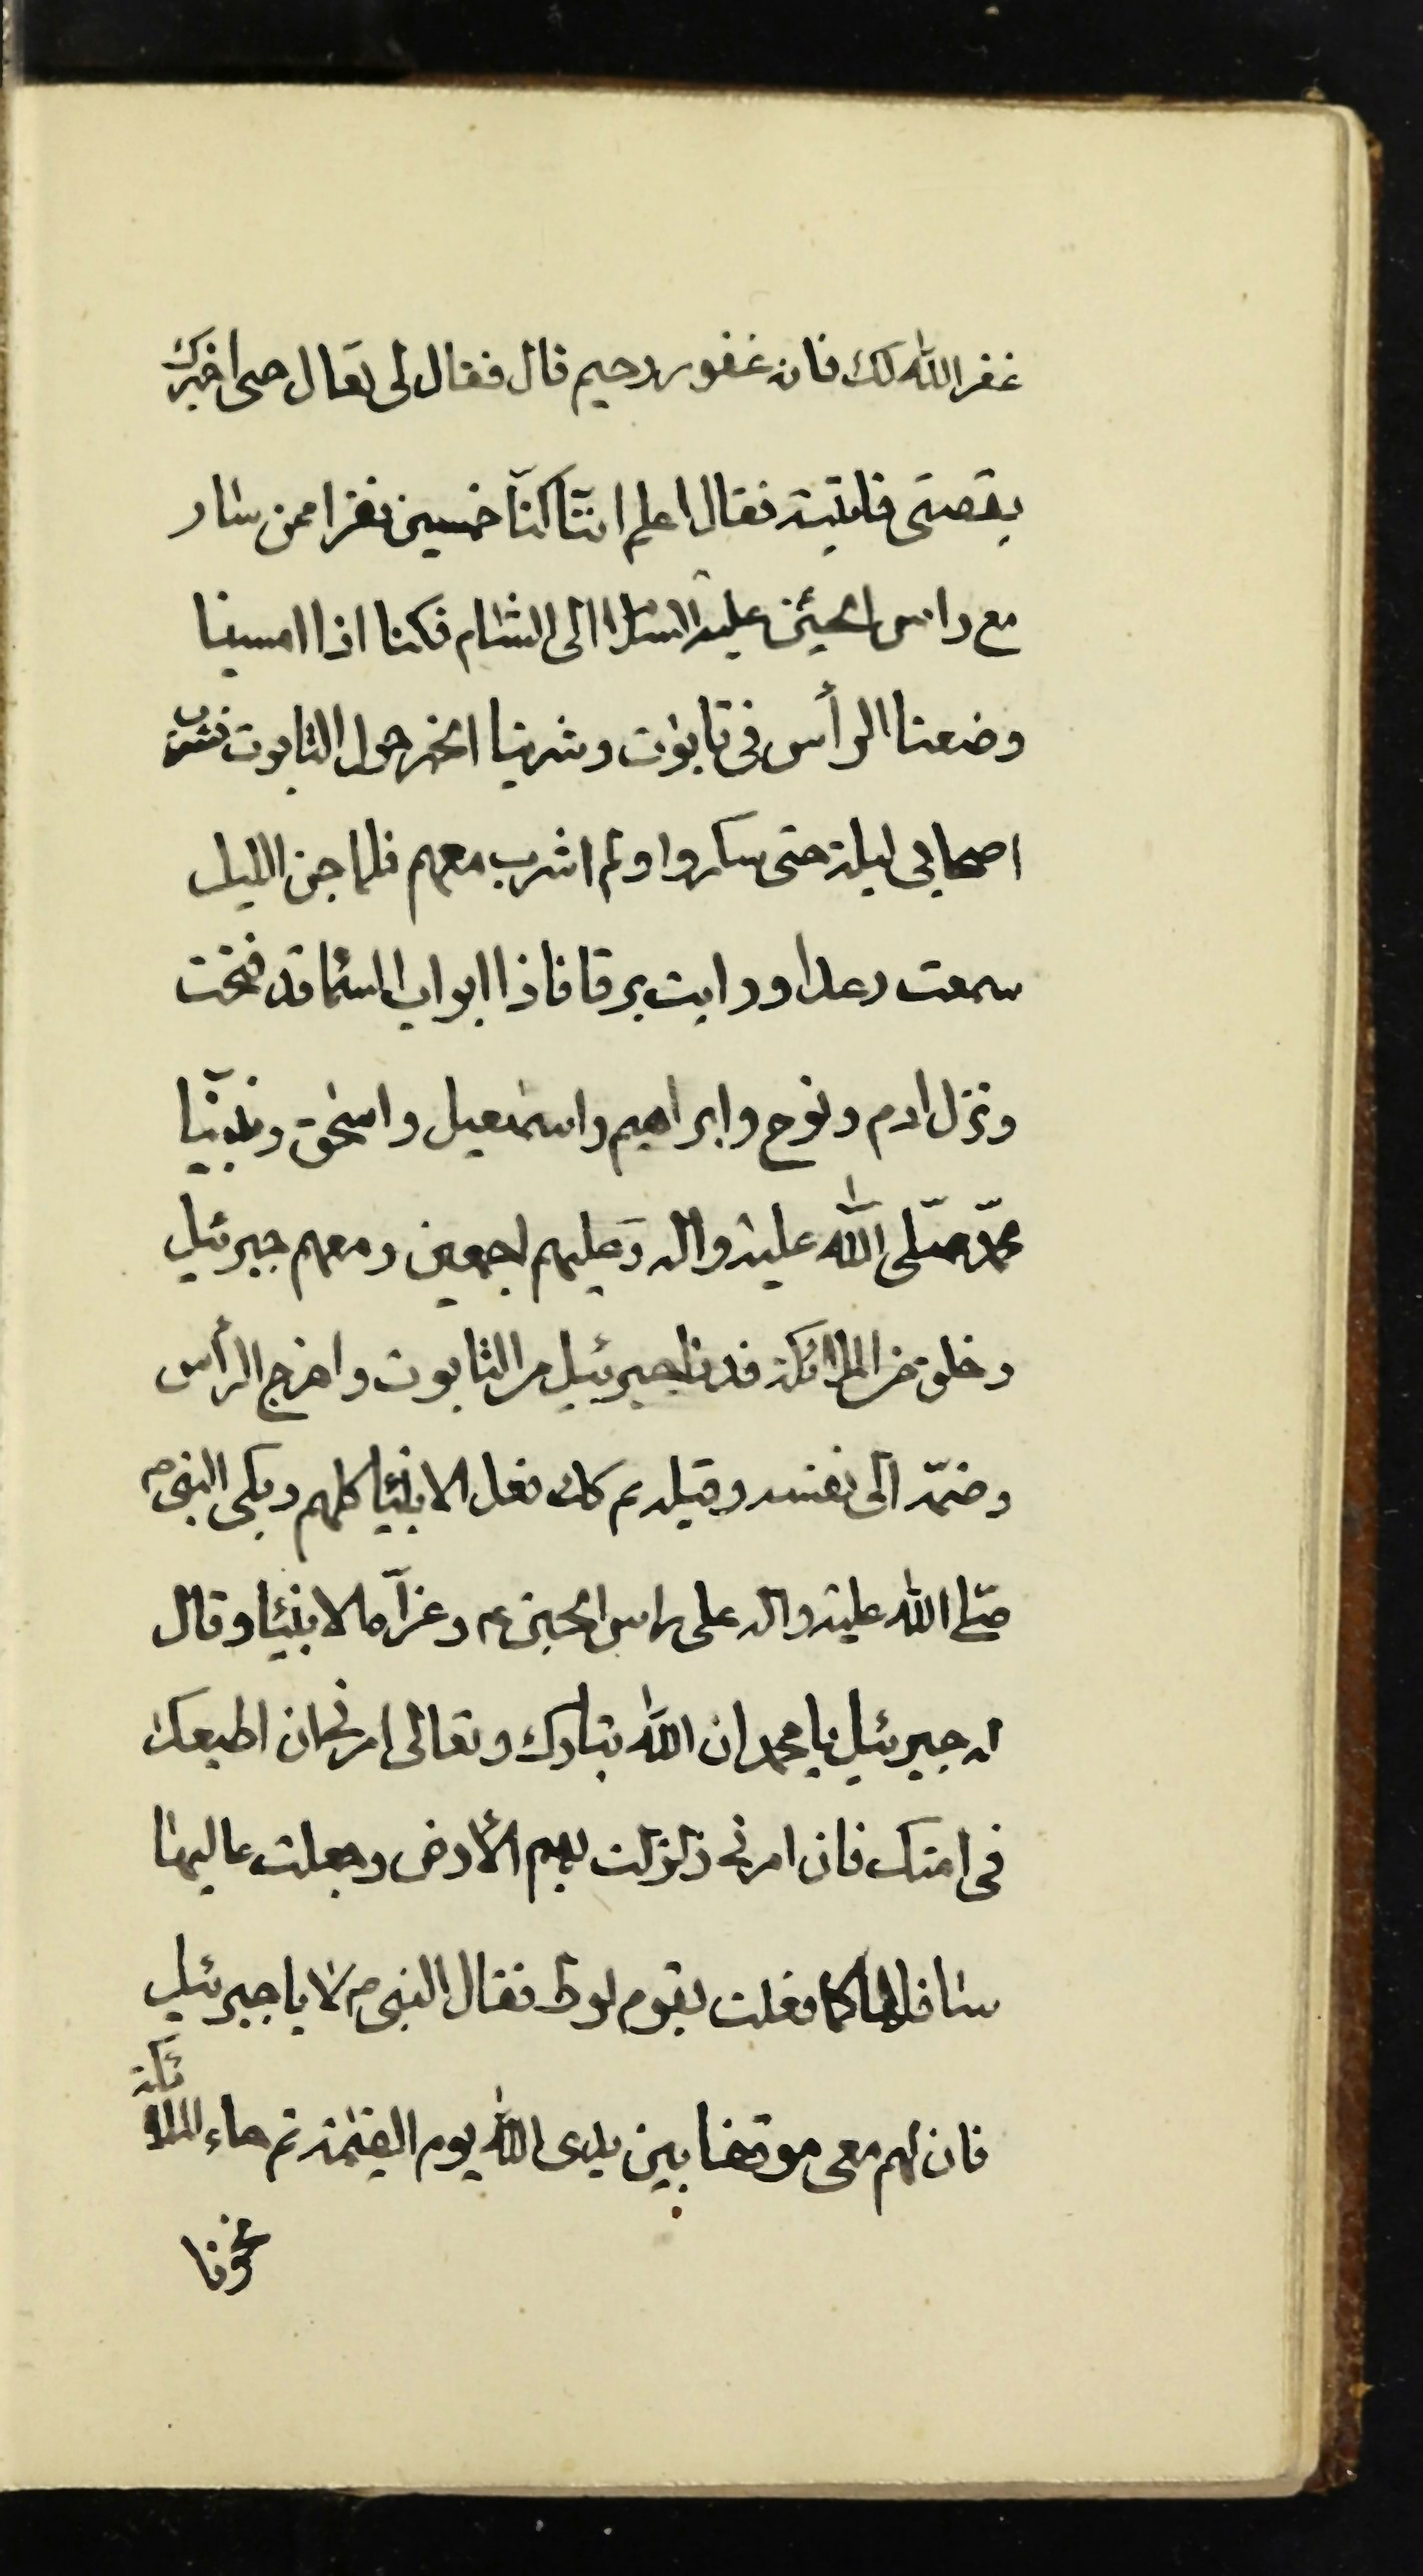 غفر الله لك فانه غفور رحيم قال فقال لى تعال حتى اخبرك
بقصتى فاتيته فقال اعلم اننا كنّا خمسين نفرا ممن سار
مع راس الحسين عليه السلام الى الشام فكنا اذا امسينا
وضعنا الرأس فى تابوت وشربنا الخمر حول التابوت فشرب
اصحابى ليلة حتى سكروا ولم اشرب معهم فلما جن الليل
سمعت رعدا ورايت برقا فاذا ابواب السمآء قد فتحت
ونزل ادم ونوح وابراهيم واسمعيل واسحق ونبيّنا
محمّد صلّى الله عليه واله وعليهم اجمعين ومعهم جبرئيل
وخلق من الملائكة فدنا جبرئيل من التابوت واخرج الرأس
وضمّه الى نفسه وقبله ثم كذلك فعل الانبياء كلهم وبكى النبى ص
صلى الله عليه واله على راس الحسين ع وعزآه الانبياء وقال
له جبرئيل يا محمد ان الله تبارك وتعالى امرنى ان اطيعك
فى امتك فان امرتنى زلزلت بهم الأرض وجعلت عاليها
سافلها كما فعلت بقوم لوط فقال النبى ص لا يا جبرئيل
فان لهم معى موقفا بين يدى الله يوم القيمة ثم جاء الملائكة
نحونا